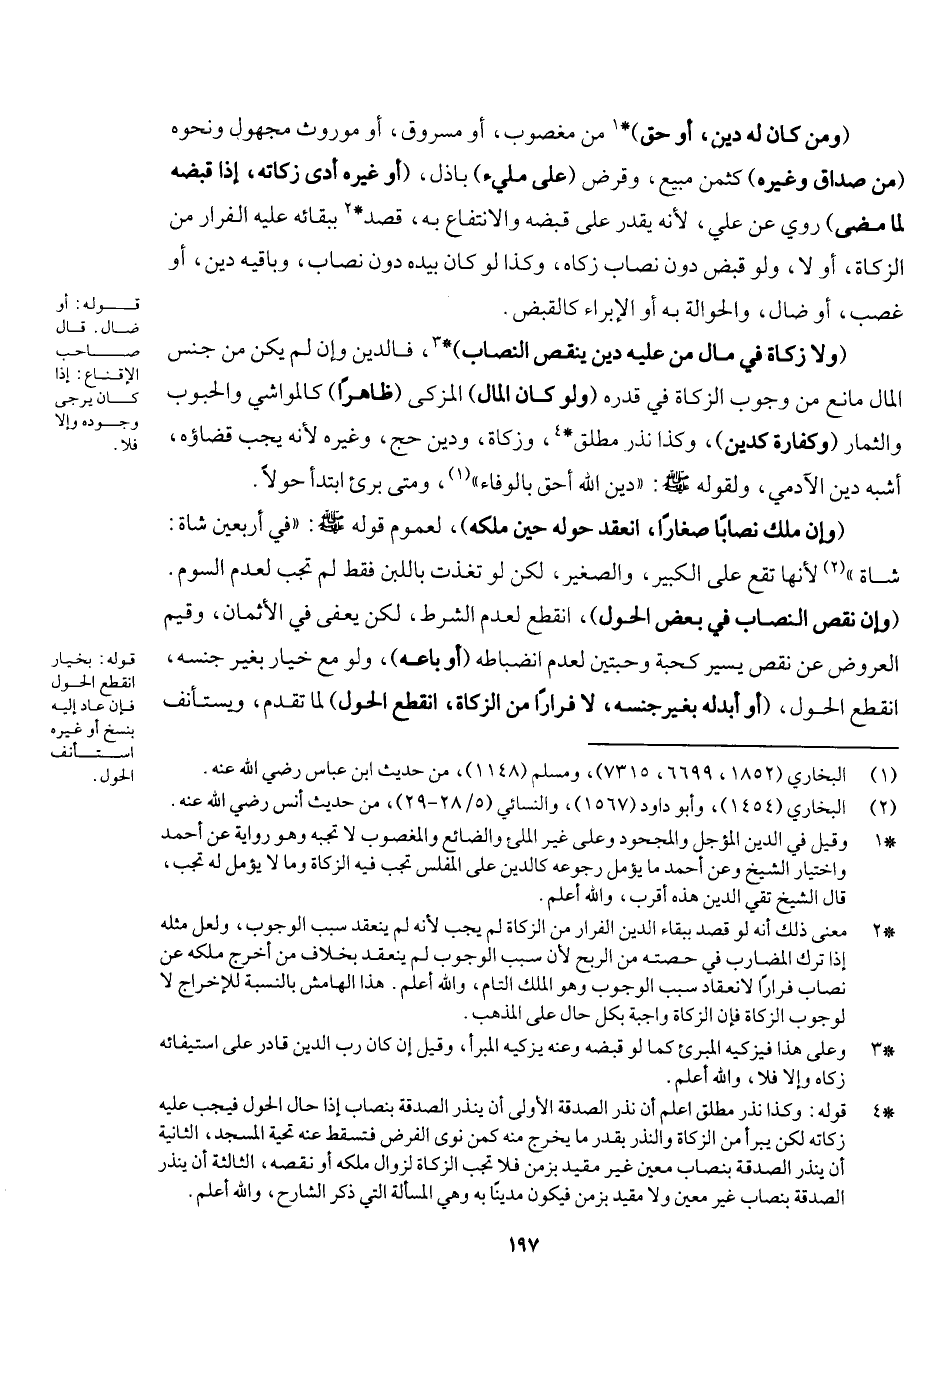 (ومن كان له دين، أو حق)*١ من مغصوب، أو مسروق، أو موروث مجهول ونحوه
(من صداق وغيره) كثمن مبيع، وقرض (على مليء) باذل، (أو غيره أدى زكاته، إذا قبضه
لما مضى) روي عن علي، لأنه يقدر على قبضه والانتفاع به، قصد*٢ ببقائه عليه الفرار من
الزكاة، أو لا، ولو قبض دون نصاب زكاه، وكذا لو كان بيده دون نصاب، وباقيه دين، أو
غصب، أو ضال، والحوالة به أو الإبراء كالقبض.
(ولا زكاة في مال من عليه دين ينقص النصاب)*٣، فالدين وإن لم يكن من جنس
المال مانع من وجوب الزكاة في قدره (ولو كان المال) المزكى (ظاهرًا) كالمواشي والحبوب
والثمار (وكفارة كدين)، وكذا نذر مطلق*٤، وزكاة، ودين حج، وغيره لأنه يجب قضاؤه،
أشبه دين الآدمي، ولقوله ﷺ: «دين الله أحق بالوفاء»(١)، ومتى برئ ابتدأ حولاً.
(وإن ملك نصابًا صغارًا، انعقد حوله حين ملكه)، لعموم قوله ﷺ: «في أربعين شاة:
شاة»(٢) لأنها تقع على الكبير، والصغير، لكن لو تغذت باللبن فقط لم تجب لعدم السوم.
(وإن نقص النصاب في بعض الحول)، انقطع لعدم الشرط، لكن يعفى في الأثمان، وقيم
العروض عن نقص يسير كحبة وحبتين لعدم انضباطه (أو باعه)، ولو مع خيار بغير جنسه،
انقطع الحول، (أو أبدله بغير جنسه، لا فرارًا من الزكاة، انقطع الحول) لما تقدم، ويستأنف
قوله: أو
ضال. قال
صاحب
الإقناع: إذا
كان يرجى
وجوده وإلا
فلا.
قوله: بخيار
انقطع الحول
فإن عاد إليه
بنسخ أو غيره
استأنف
الحول.
(١) البخاري (١٨٥٢، ٦٦٩٩، ٧٣١٥)، ومسلم (١١٤٨)، من حديث ابن عباس رضي الله عنه.
(٢) البخاري (١٤٥٤)، وأبو داود (١٥٦٧)، والنسائي (٥/ ٢٨-٢٩)، من حديث أنس رضي الله عنه.
*١ وقيل في الدين المؤجل والمجحود وعلى غير الملئ والضائع والمغصوب لا تجبه وهو رواية عن أحمد
واختيار الشيخ وعن أحمد ما يؤمل رجوعه كالدين على المفلس تجب فيه الزكاة وما لا يؤمل له تجب،
قال الشيخ تقي الدين هذه أقرب، والله أعلم.
*٢ معنى ذلك أنه لو قصد ببقاء الدين الفرار من الزكاة لم يجب لأنه لم ينعقد سبب الوجوب، ولعل مثله
إذا ترك المضارب في حصته من الربح لأن سبب الوجوب لم ينعقد بخلاف من أخرج ملكه عن
نصاب فرارًا لانعقاد سبب الوجوب وهو الملك التام، والله أعلم. هذا الهامش بالنسبة للإخراج لا
لوجوب الزكاة فإن الزكاة واجبة بكل حال على المذهب.
*٣ وعلى هذا فيزكيه المبرئ كما لو قبضه وعنه يزكيه المبرأ، وقيل إن كان رب الدين قادر على استيفائه
زكاه وإلا فلا، والله أعلم.
*٤ قوله: وكذا نذر مطلق اعلم أن نذر الصدقة الأولى أن ينذر الصدقة بنصاب إذا حال الحول فيجب عليه
زكاته لكن يبرأ من الزكاة والنذر بقدر ما يخرج منه كمن نوى الفرض فتسقط عنه تحية المسجد، الثانية
أن ينذر الصدقة بنصاب معين غير مقيد بزمن فلا تجب الزكاة لزوال ملكه أو نقصه، الثالثة أن ينذر
الصدقة بنصاب غير معين ولا مقيد بزمن فيكون مدينًا به وهي المسألة التي ذكر الشارح، والله أعلم.
١٩٧